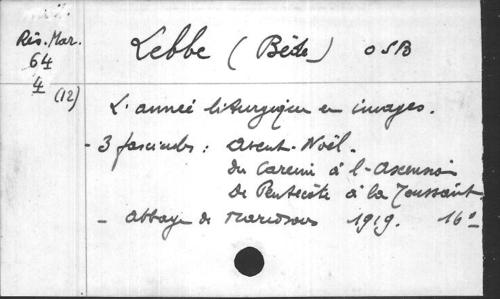 Rés. Mar.
64
4
(12)
Lebbe (Bède) OSB
L'année liturgique en images.
- 3 fascicules : Avent-Noël.
du Careme à l'Ascension
De Pentecôte à la Toussaint
- Abbaye de Maredsous 1919. 16°